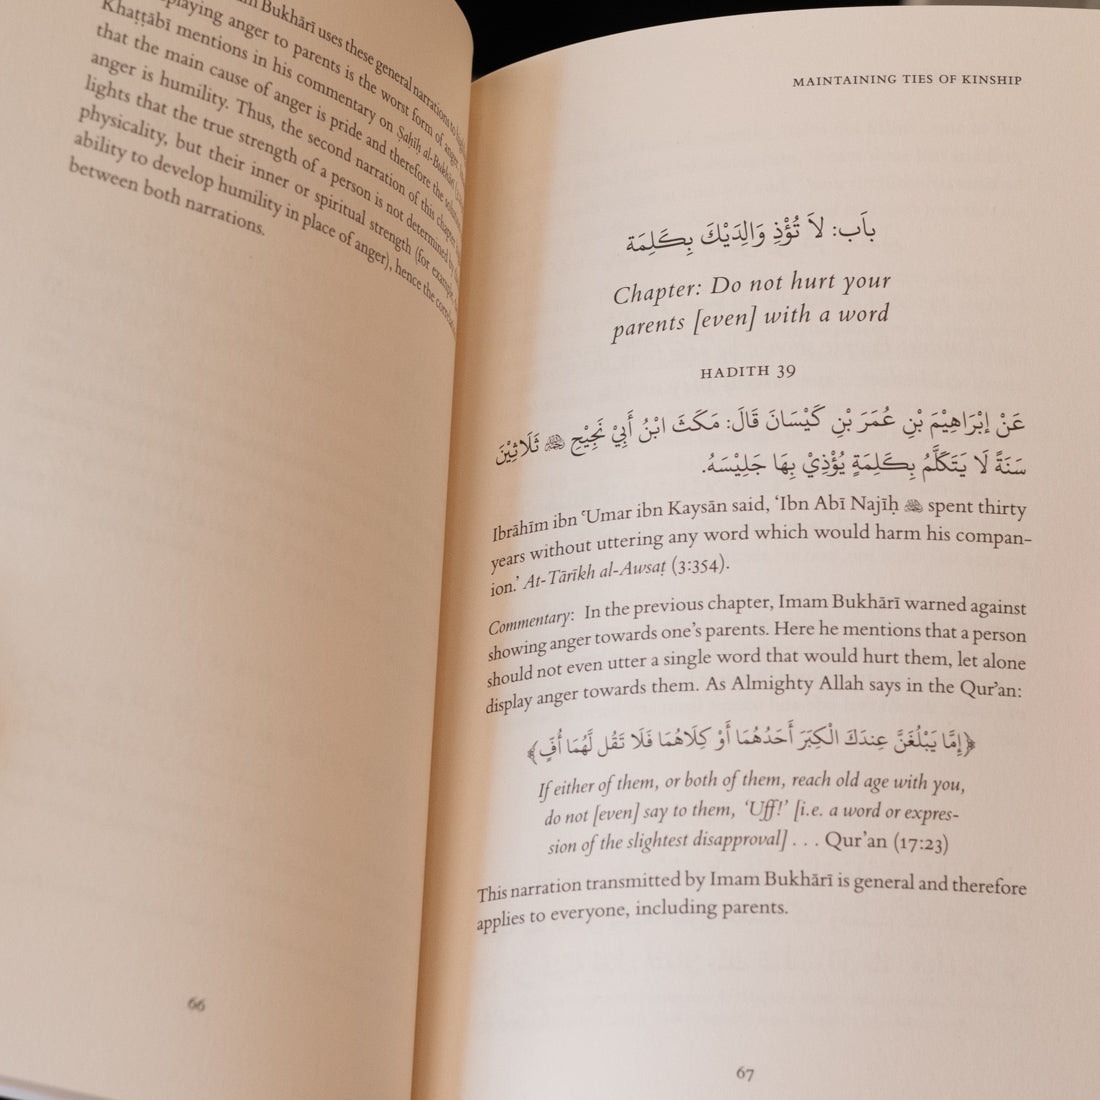 Bukhārī uses these general narrations to
playing anger to parents is the worst form of anger.
Khaṭṭābī mentions in his commentary on Ṣaḥīḥ al-Bukhārī
that the main cause of anger is pride and therefore the
anger is humility. Thus, the second narration of this chapter
lights that the true strength of a person is not determined by
physicality, but their inner or spiritual strength (for example,
ability to develop humility in place of anger), hence the
between both narrations.
66
MAINTAINING TIES OF KINSHIP
بَاب: لاَ تُؤْذِ وَالِدَيْكَ بِكَلِمَة
Chapter: Do not hurt your
parents [even] with a word
HADITH 39
عَنْ إِبْرَاهِيْمَ بْنِ عُمَرَ بْنِ كَيْسَانَ قَالَ: مَكَثَ ابْنُ أَبِيْ نَجِيْحٍ ثَلَاثِيْنَ
سَنَةً لَا يَتَكَلَّمُ بِكَلِمَةٍ يُؤْذِيْ بِهَا جَلِيْسَهُ.
Ibrāhīm ibn ʿUmar ibn Kaysān said, ‘Ibn Abī Najīḥ spent thirty
years without uttering any word which would harm his compan-
ion.’ At-Tārīkh al-Awsaṭ (3:354).
Commentary: In the previous chapter, Imam Bukhārī warned against
showing anger towards one’s parents. Here he mentions that a person
should not even utter a single word that would hurt them, let alone
display anger towards them. As Almighty Allah says in the Qur’an:
﴿إِمَّا يَبْلُغَنَّ عِندَكَ الْكِبَرَ أَحَدُهُمَا أَوْ كِلَاهُمَا فَلَا تَقُل لَّهُمَا أُفٍّ﴾
If either of them, or both of them, reach old age with you,
do not [even] say to them, ‘Uff!’ [i.e. a word or expres-
sion of the slightest disapproval] . . . Qur’an (17:23)
This narration transmitted by Imam Bukhārī is general and therefore
applies to everyone, including parents.
67